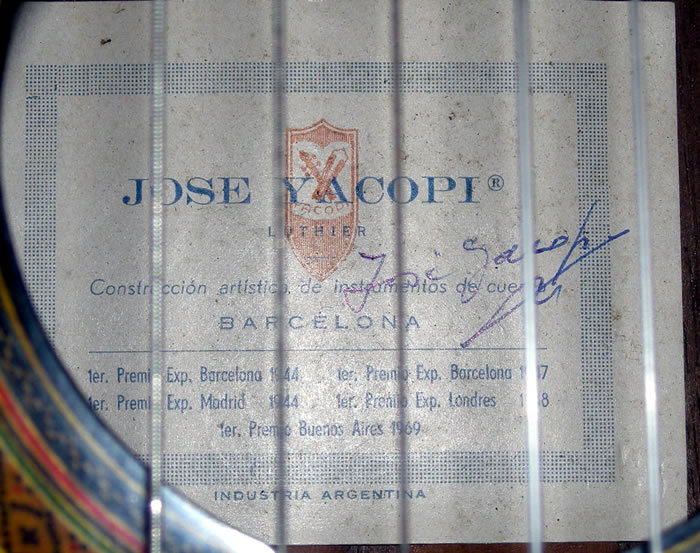 YACOPI
JOSE YACOPI®
LUTHIER
José Yacopi
Construcción artística de instrumentos de cuerda
BARCELONA
1er. Premio Exp. Barcelona 1944 1er. Premio Exp. Barcelona 1947
1er. Premio Exp. Madrid 1944 1er. Premio Exp. Londres 1948
1er. Premio Buenos Aires 1969
INDUSTRIA ARGENTINA